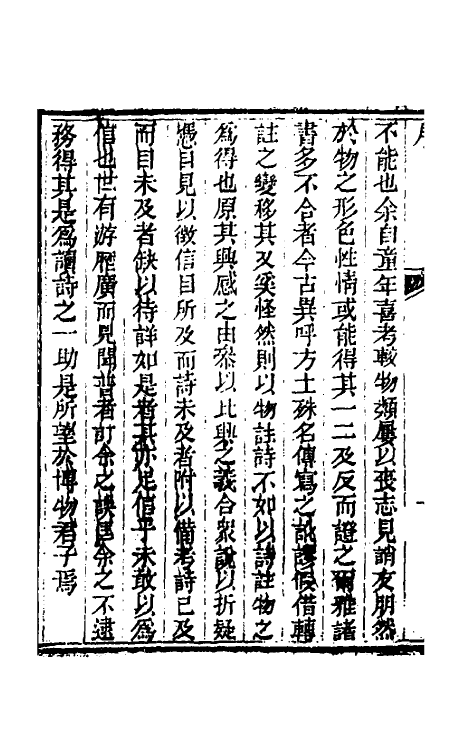 不能也余自童年喜考較物類屢以喪志見誚友朋然
於物之形色性情或能得其一二及反而證之爾雅諸
書多不合者今古異呼方土殊名傳寫之訛謬假借轉
註之變移其又奚怪然則以物註詩不如以詩註物之
爲得也原其興感之由叅以比興之義合衆說以折疑
憑目見以徵信目所及而詩未及者附以備考詩已及
而目未及者缺以待詳如是者其亦足信乎未敢以爲
信也世有游歷廣而見聞普者訂余之誤匡余之不逮
務得其是爲讀詩之一助是所望於博物君子焉